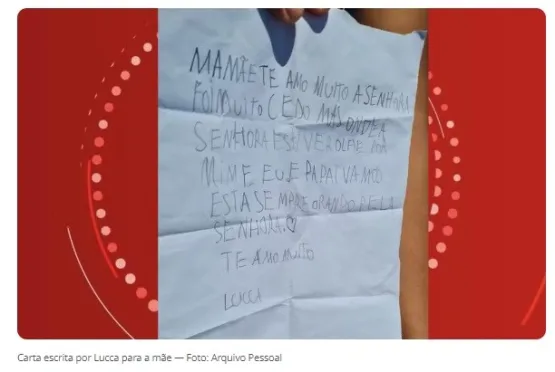 MAMÃE TE AMO MUITO A SENHORA
FOI MUITO CEDO MAS ONDE A
SENHORA ESTIVER OLHE POR
MIM E EU E PAPAI VAMOS
ESTA SEMPRE ORANDO PELA
SENHORA.♡
TE AMO MUITO
LUCCA
Carta escrita por Lucca para a mãe — Foto: Arquivo Pessoal